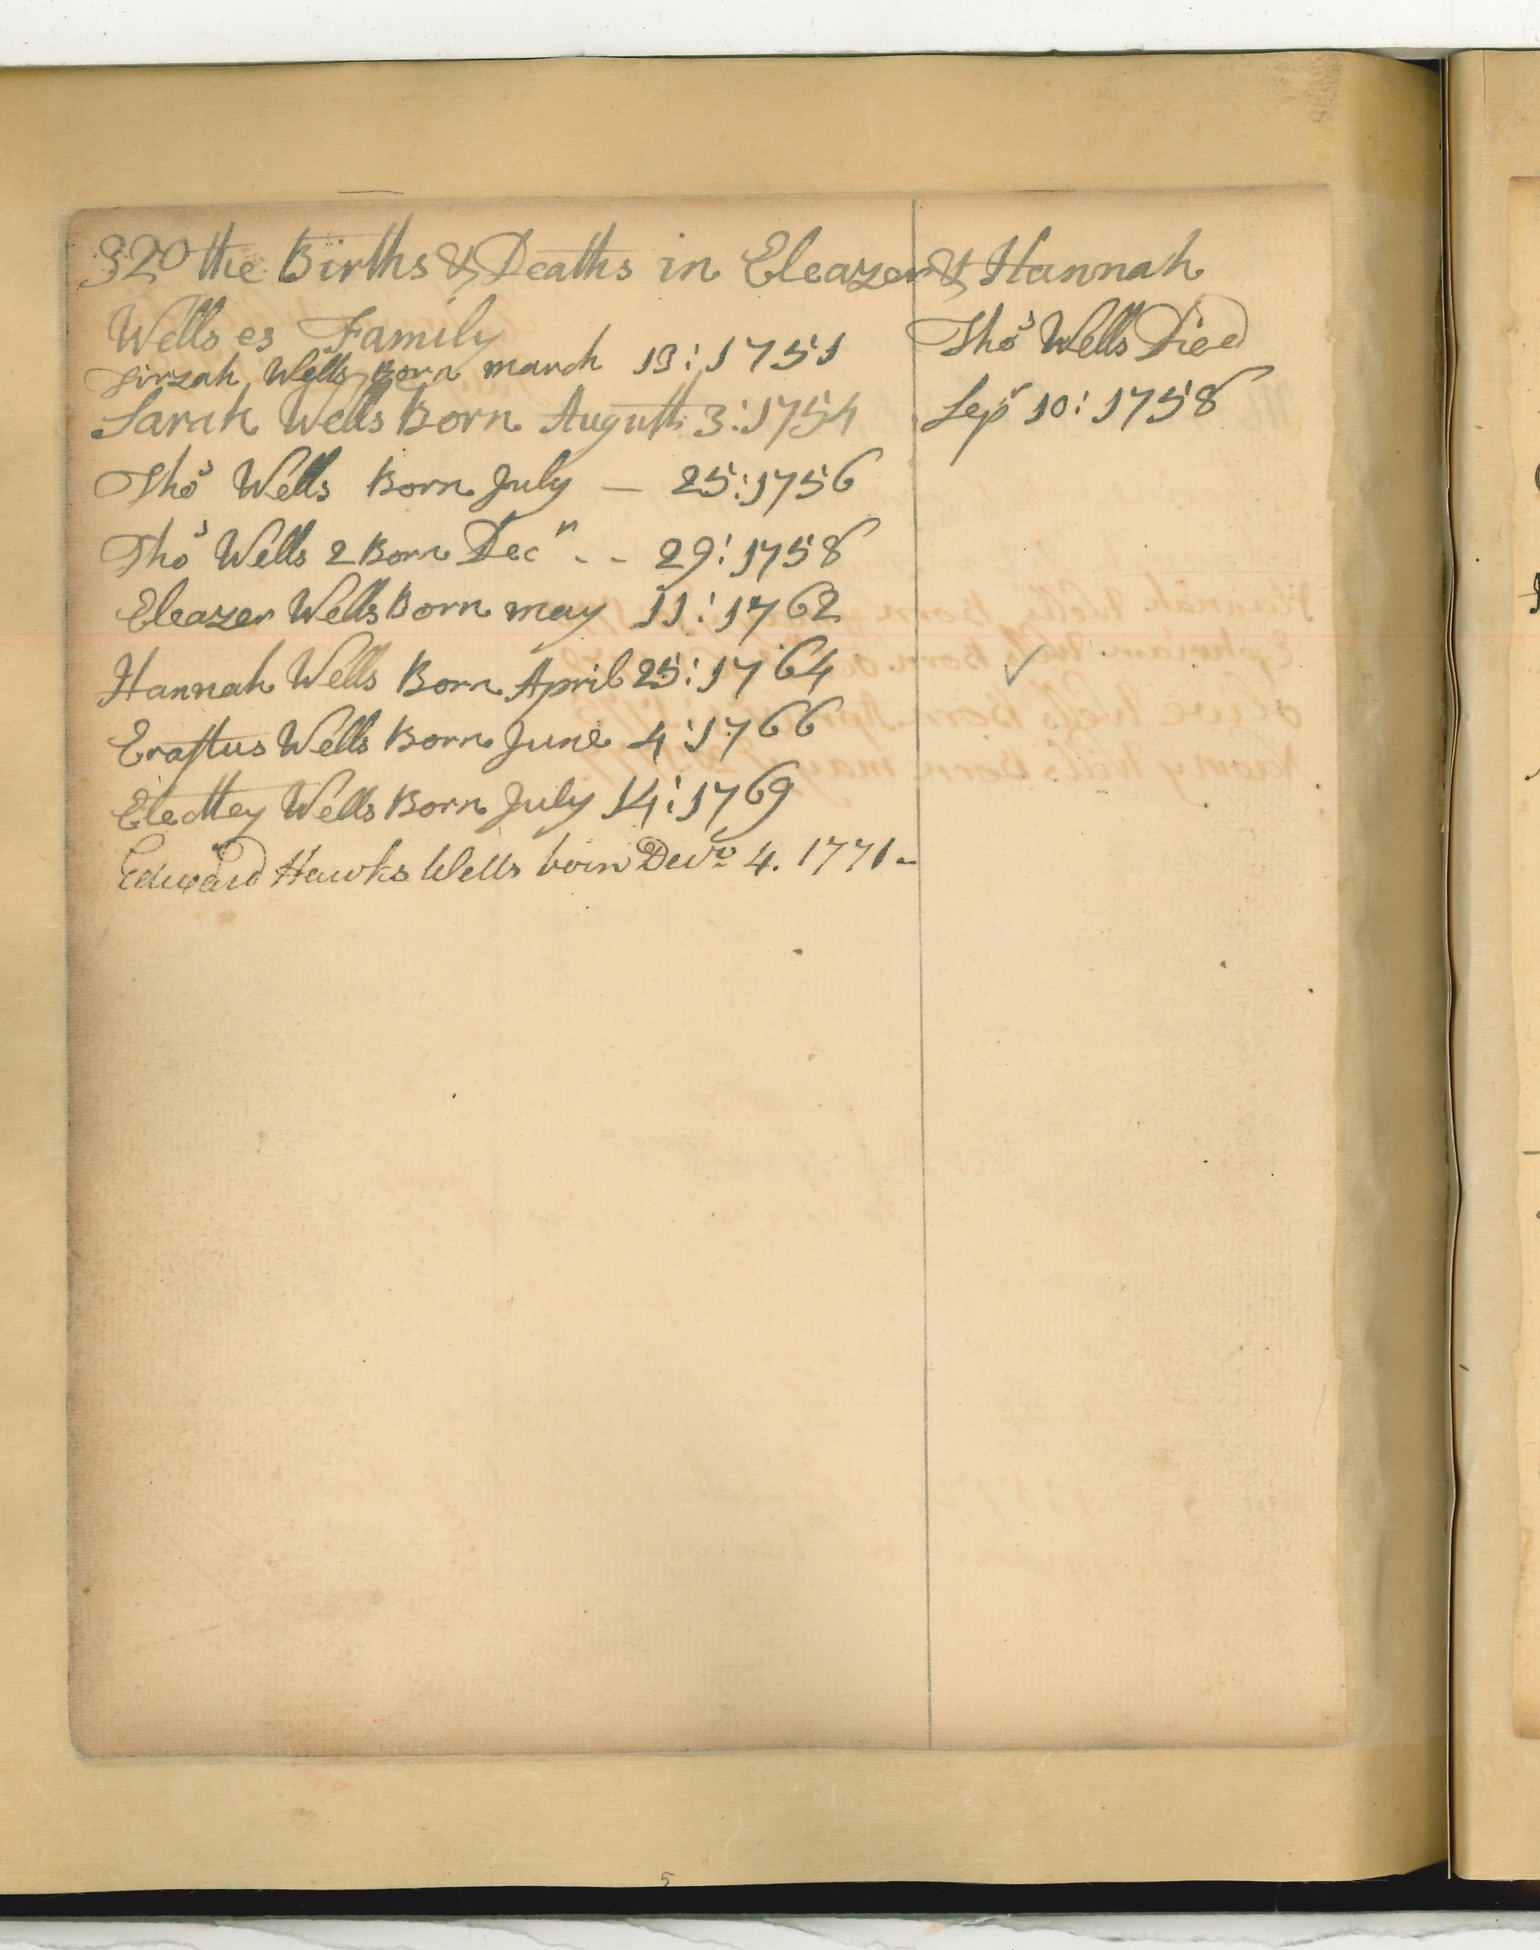 320 the Births & Deaths in Eleazer & Hannah
Wells es Family
Tirzah Wells Born march 13: 1751
Sarah Wells Born August 3: 1754
Thos Wells Born July — 25: 1756
Thos Wells 2 Born Decr - - 29: 1758
Eleazer Wells Born may 11: 1762
Hannah Wells Born April 25: 1764
Erastus Wells Born June 4: 1766
Electtey Wells Born July 14: 1769
Edward Hawks Wells born Decr 4. 1771 -
Thos Wells Died
Sepr 10: 1758
✓
5